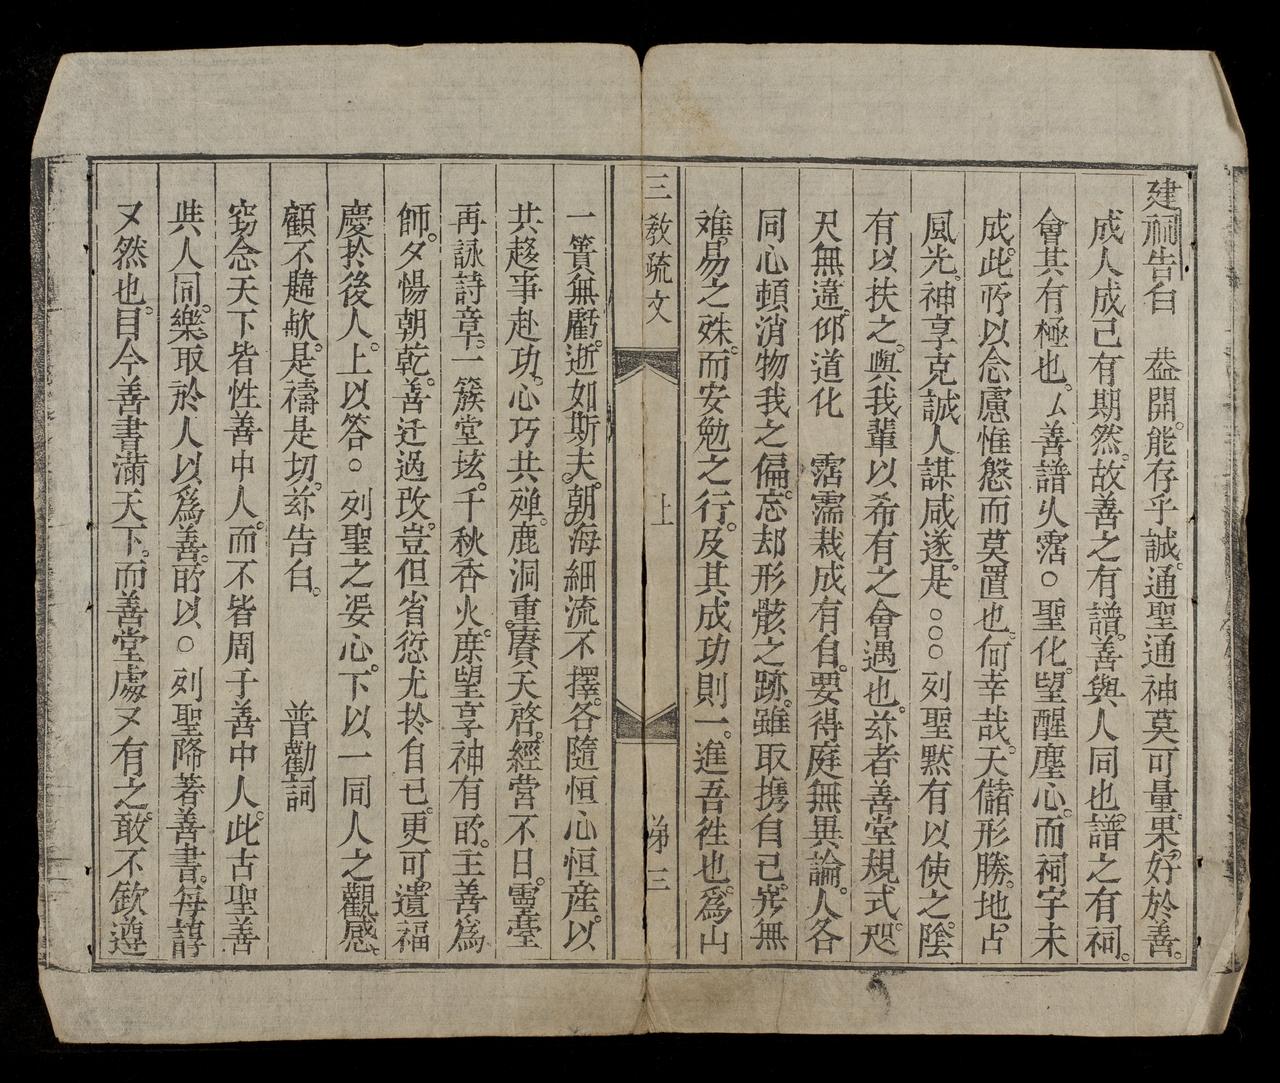 建祠告白　葢開。能存乎誠。通聖通神莫可量。果好於善。
成人成己有期然。故善之有譜。善與人同也。譜之有祠。
會其有極也。厶善譜乆霑○聖化。望醒塵心。而祠宇未
成。此所以念慮惟慇而莫置也。何幸哉。天儲形勝。地占
風光。神享克誠人謀咸遂。是○○○列聖黙有以使之。陰
有以扶之。與我輩以希有之會遇也。茲者善堂規式。咫
尺無違。仰道化　霑濡栽成有自。要得庭無異論。人各
同心頓消物我之偏。忘却形骸之跡。雖取携自已。竟無
難易之殊。而安勉之行。及其成功則一。進吾徃也。爲山
三教疏文　上　第三
一簣無虧。逝如斯夫。朝海細流不擇。各隨恒心恒産。以
共趍亊赴功。心巧共殫。鹿洞重賡天啓。經營不日。靈臺
再詠詩章。一簇堂垓。千秋香火。庶望享神有所。主善爲
師。夕惕朝乾。善迁過改。豈但省愆尤扵自已。更可遺福
慶扵後人。上以答○列聖之婆心。下以一同人之觀感。
顧不韙歟。是禱是切。茲告白。　普勸詞
窃念天下皆性善中人。而不皆周于善中人。此古聖善
與人同。樂取於人以爲善。所以○列聖降著善書。每諄
又然也。目今善書滿天下。而善堂處又有之。敢不欽遵